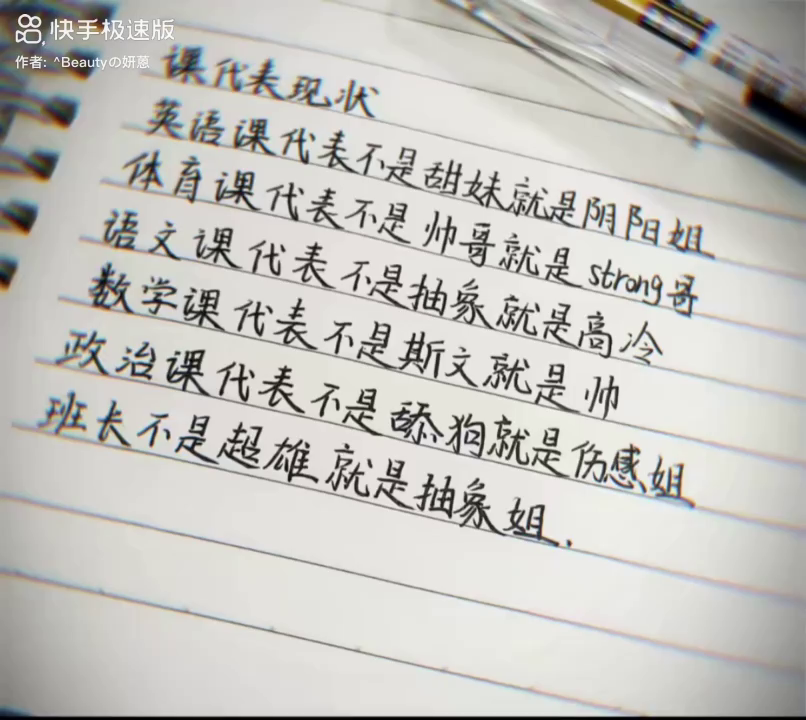 快手极速版
作者: ^Beautyの妍蒽
课代表现状
英语课代表不是甜妹就是阴阳姐
体育课代表不是帅哥就是strong哥
语文课代表不是抽象就是高冷
数学课代表不是斯文就是帅
政治课代表不是舔狗就是伤感姐
班长不是超雄就是抽象姐.